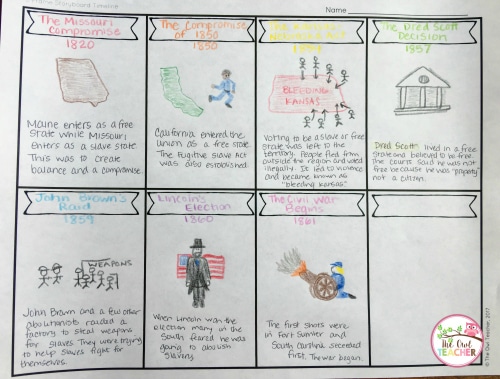 Storyboard Timeline
Name
The Missouri
Compromise
1820
Maine enters as a free
state while Missouri
enters as a slave state.
This was to create
balance and a compromise.
The Compromise
of 1850
1850
California entered the
union as a free state.
The Fugitive Slave Act
was also established.
1854
BLEEDING
KANSAS
Voting to be a slave or free
state was left to the
territory. People flied from
outside the region and voted
illegally. It led to violence
and became known as
"bleeding Kansas."
The Dred Scott
Decision
1857
Dred Scott lived in a free
state and believed to be free.
The courts said he was not
free because he was "property"
not a citizen.
John Brown's
Raid
1859
WEAPONS
John Brown and a few other
abolitionists raided a
factory to steal weapons
for slaves. They were trying
to help slaves fight for
themselves.
Lincoln's
Election
1860
When Lincoln won the
election many in the
South feared he was
going to abolish
slavery.
The Civil War
Begins
1861
The first shots were
in Fort Sumter and
South Carolina seceded
first. The war began.
The Owl
Teacher
© The Owl Teacher 2017